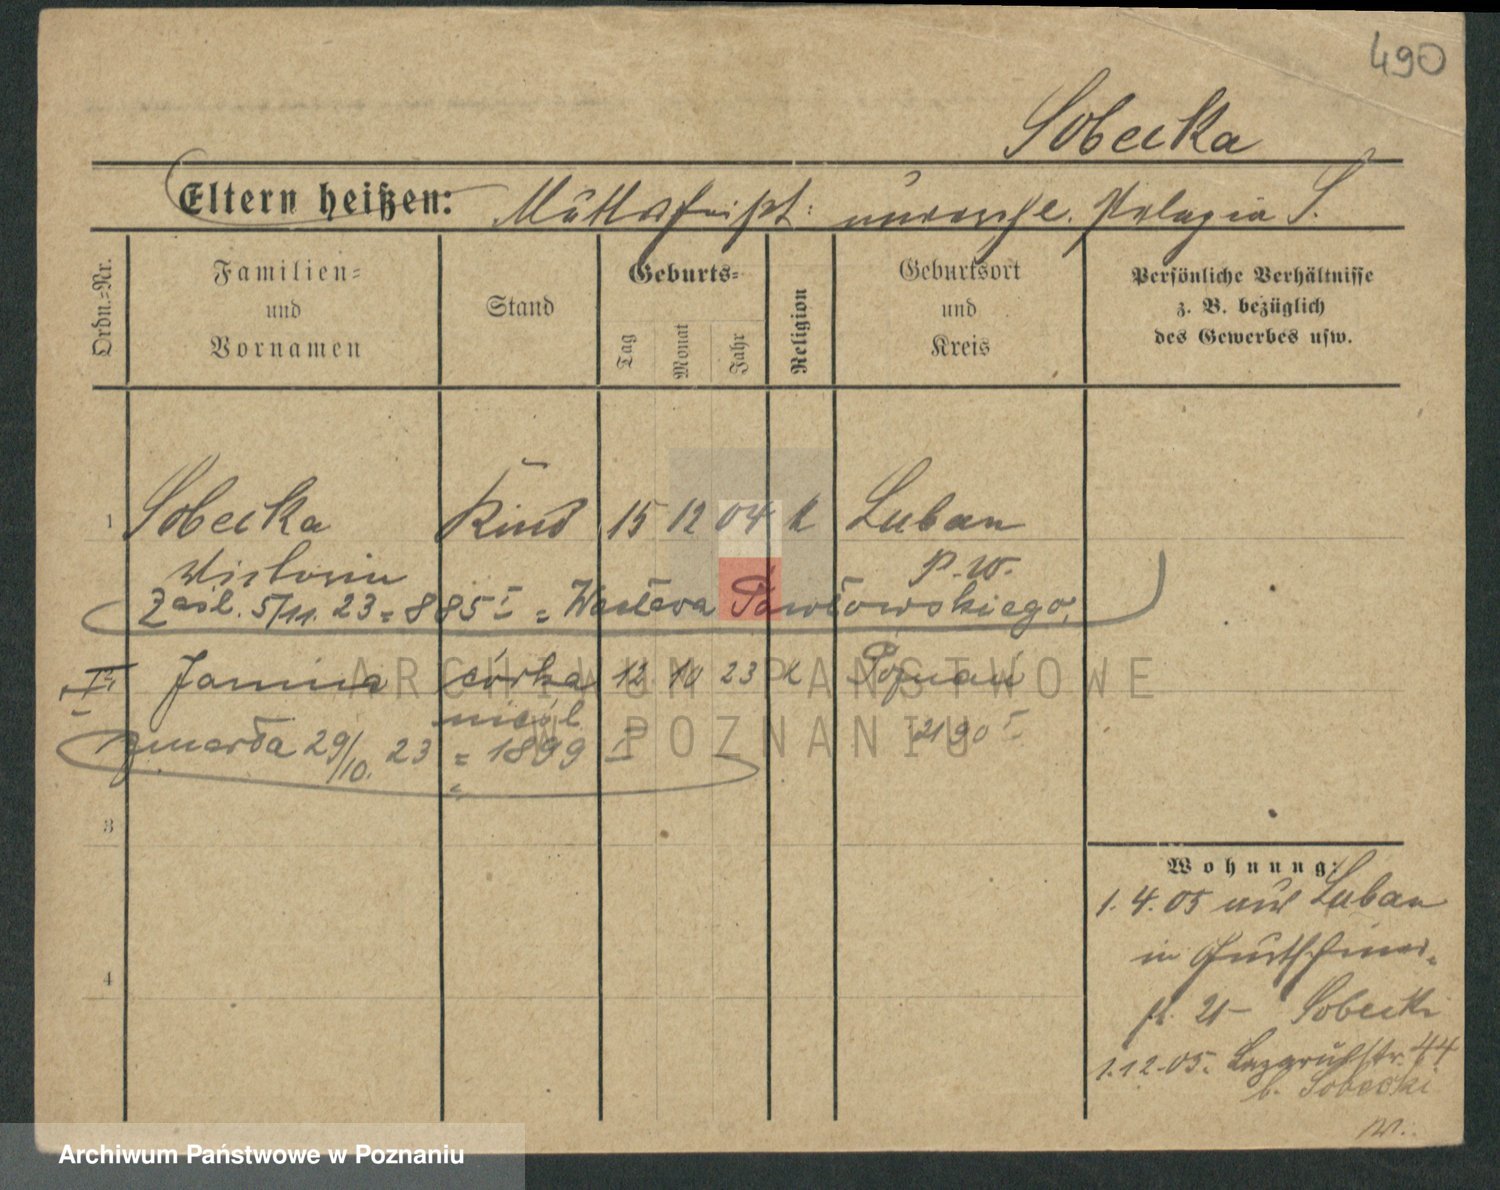 490
Sobecka
Eltern heißen: Mutter heißt: unverehl. Pelagia S.
Ordn.=Nr.
Familien=
und
Vornamen
Stand
Geburts=
Tag
Monat
Jahr
Religion
Geburtsort
und
Kreis
Persönliche Verhältnisse
z. B. bezüglich
des Gewerbes usw.
1 Sobecka Kind 15 12 04 k Luban
P. W.
Zaśl. 5/11. 23 = 885 I = Wacława Pawłowskiego.
II Janina córka 12 10 23 k Poznań
nieśl 2190 I
zmarła 29/10. 23 = 1899 I
3
4
Wohnung:
1. 4. 05 aus Luban
in
21 Sobecki
1.12.05. str. 44
b. Sobecki
ARCHIWUM PAŃSTWOWE
W POZNANIU
Archiwum Państwowe w Poznaniu